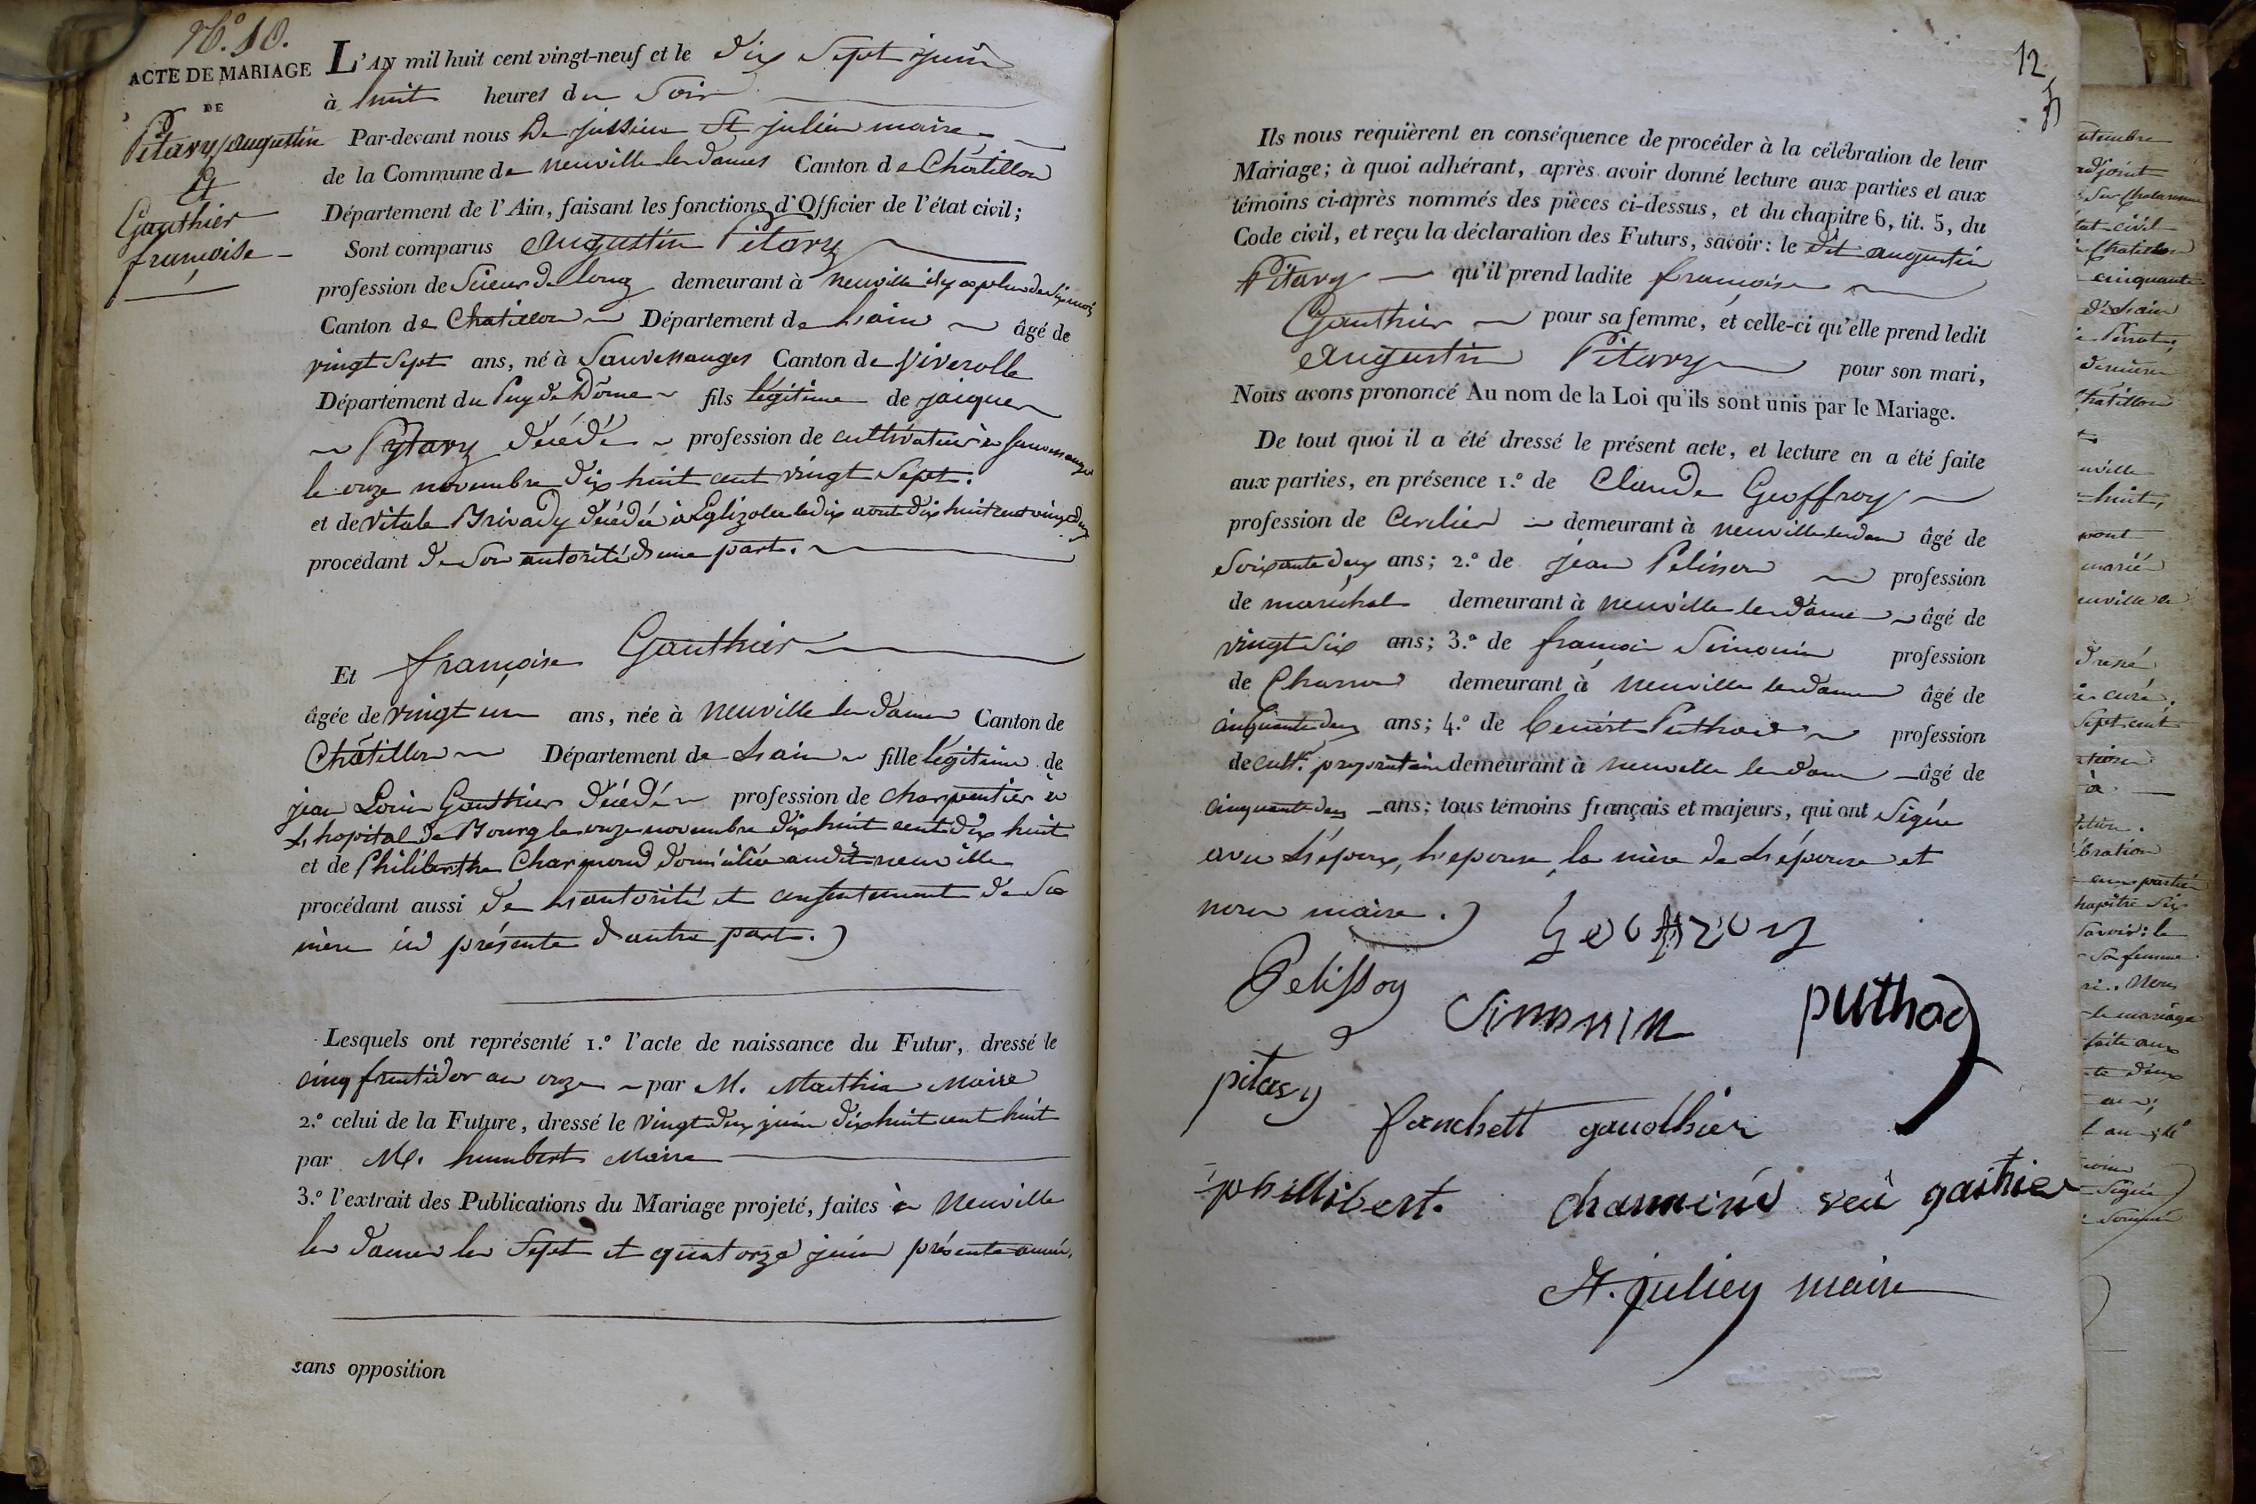 N.º 10.
ACTE DE MARIAGE
DE
Pitavy Augustin
et
Gauthier
françoise
L'AN mil huit cent vingt-neuf et le dix sept juin
à huit heures du soir
Par-devant nous De jussieu St julien maire
de la Commune de neuville les dames Canton de Châtillon
Département de l'Ain, faisant les fonctions d'Officier de l'état civil;
Sont comparus Augustin Pitavy
profession de Scieur de long demeurant à neuville il y a plus de six mois
Canton de Chatillon Département de L'ain âgé de
vingt sept ans, né à Sauvessanges Canton de Viverolle
Département du Puy de Dôme fils légitime de jacques
Pytavy décédé profession de cultivateur à Sauvessanges
le onze novembre dix huit cent vingt sept.
et de Vitale Brivady décédée à Eglizolle le dix aout dix huit cent vingt deux
procédant de Son autorité d'une part.
Et françoise Gauthier
âgée de vingt un ans, née à Neuville les dames Canton de
Châtillon Département de L'ain fille légitime de
jean Louis Gauthier décédé profession de charpentier à
L'hopital de Bourg le onze novembre dix huit cent dix huit
et de Philiberthe Charmond domiciliée audit neuville
procédant aussi de L'autorité et consentement de Sa
mère ici présente d'autre part.
Lesquels ont représenté 1.º l'acte de naissance du Futur, dressé le
cinq fructidor an onze par M. Mathias Maire
2.º celui de la Future, dressé le vingt deux juin dix huit cent huit
par M. humbert Maire
3.º l'extrait des Publications du Mariage projeté, faites à Neuville
les dames les Sept et quatorze juin présente année.
sans opposition
12
Ils nous requièrent en conséquence de procéder à la célébration de leur
Mariage; à quoi adhérant, après avoir donné lecture aux parties et aux
témoins ci-après nommés des pièces ci-dessus, et du chapitre 6, tit. 5, du
Code civil, et reçu la déclaration des Futurs, savoir: le dit augustin
Pitavy qu'il prend ladite françoise
Gauthier pour sa femme, et celle-ci qu'elle prend ledit
Augustin Pitavy pour son mari,
Nous avons prononcé Au nom de la Loi qu'ils sont unis par le Mariage.
De tout quoi il a été dressé le présent acte, et lecture en a été faite
aux parties, en présence 1.º de Claude Geoffroy
profession de demeurant à neuville les dam âgé de
Soixante deux ans; 2.º de jean Pelisson profession
de maréchal demeurant à neuville les dames âgé de
vingt Six ans; 3.º de françois Simonin profession
de Charron demeurant à neuville les dames âgé de
cinquante deux ans; 4.º de benoit Puthod profession
de cult.r propriétaire demeurant à neuville les dames âgé de
cinquante deux ans; tous témoins français et majeurs, qui ont Signé
avec L'époux, L'epouse, la mère de L'épouse et
nous maire.
Pelisson
Simonin
puthod
pitavy
fanchett gauothier
phillibert. veu gaithier
St. julien maire